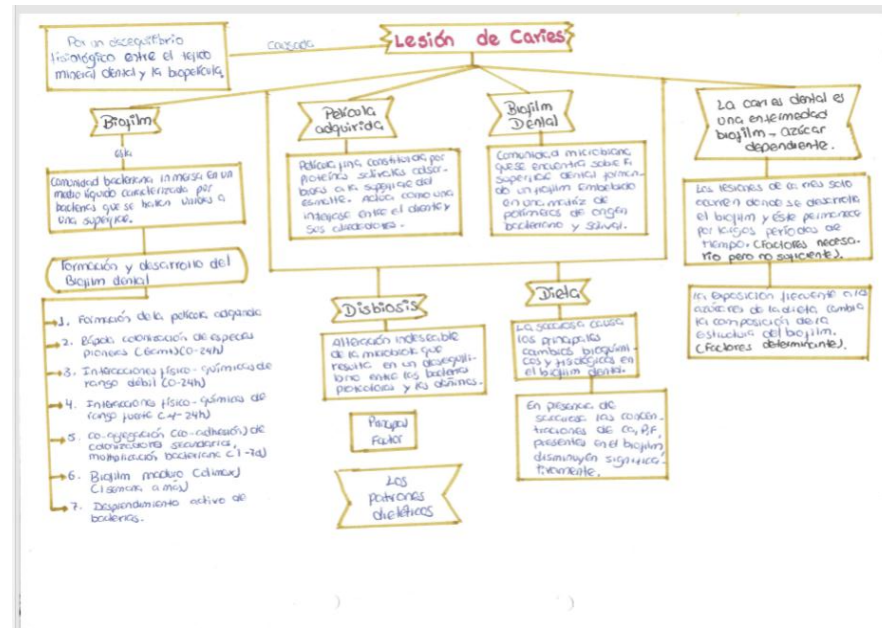 Lesión de Caries
Por un desequilibrio
fisiológico entre el tejido
mineral dental y la biopelícula
causada
Biofilm
es la
Comunidad bacteriana inmersa en un
medio líquido caracterizada por
bacterias que se hallan unidas a
una superficie.
Formación y desarrollo del
Biofilm dental
1. Formación de la película adquirida
2. Rápida colonización de especies
pioneras (0-24h)
3. Interacciones físico-químicas de
rango débil (0-24h)
4. Interacciones físico-químicas de
rango fuerte (4-24h)
5. co-agregación (co-adhesión) de
colonizadores secundarios,
multiplicación bacteriana (1-7d)
6. Biofilm maduro (climax)
(1 semana a más)
7. Desprendimiento activo de
bacterias.
Película
adquirida
Película fina constituida por
proteínas salivales adsor-
bidas a la superficie del
esmalte. Actúa como una
interfase entre el diente y
sus alrededores.
Biofilm
Dental
Comunidad microbiana
que se encuentra sobre la
superficie dental forman-
do un biofilm embebido
en una matriz de
polímeros de origen
bacteriano y salival.
La caries dental es
una enfermedad
biofilm - azúcar
dependiente.
Las lesiones de caries solo
ocurren donde se desarrolla
el biofilm y éste permanece
por largos períodos de
tiempo. (Factores necesa-
rio pero no suficiente).
la exposición frecuente a los
azúcares de la dieta cambia
la composición de la
estructura del biofilm.
(Factores determinante).
Disbiosis
Alteración indeseable
de la microbiota que
resulta en un desequili-
brio entre las bacterias
protectoras y las dañinas.
Principal
Factor
Los
patrones
dietéticos
Dieta
La sacarosa causa
los principales
cambios bioquími-
cos y fisiológicos en
el biofilm dental.
En presencia de
sacarosa las concen-
traciones de Ca, P, F,
presentes en el biofilm,
disminuyen significa-
tivamente.